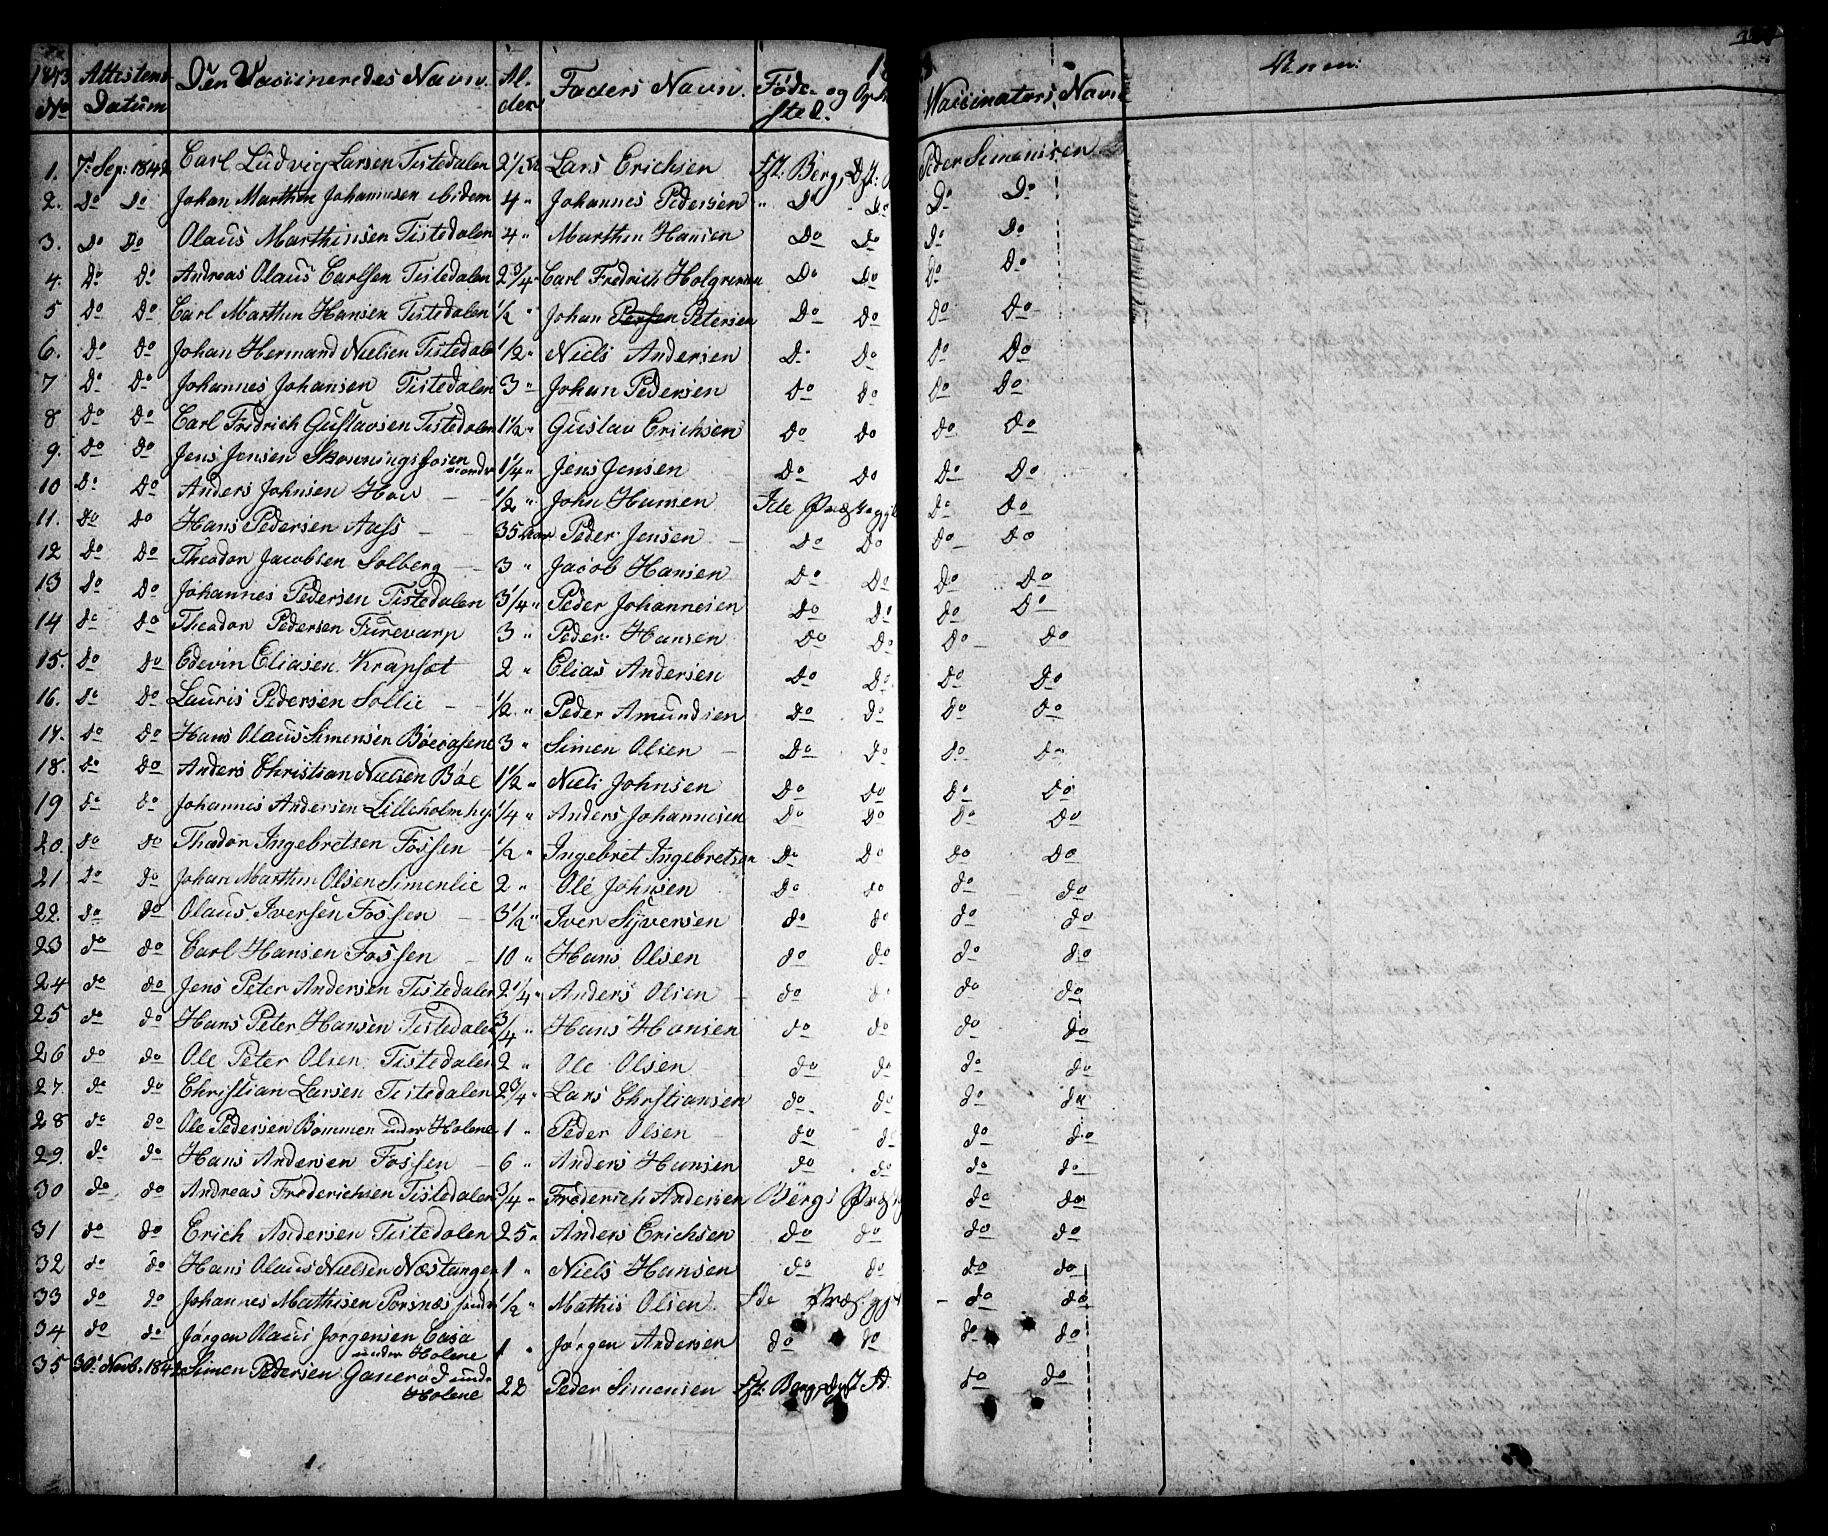 1843 Attistens Den Vaccineredes Navn. Al- Faders Navn. Føde- og Op
No Datum der sted. Vaccinators Navn Anm:
1. 7 Sep: 1842 Carl Ludvig Larsen Tistedalen 2 1/2 Lars Erichsen Fft. Berg, Dft: Peder Simensen
2. Do Do Johan Marthin Johannesen ibidem 4 " Johannes Pedersen " Do Do Do Do
3. Do Do Olaus Marthinsen Tistedalen 4 " Marthin Hansen Do Do Do Do
4. Do Do Andreas Olaus Carlsen Tistedalen 2 3/4 " Carl Fredrich Holgreen Do Do Do Do
5 Do Do Carl Marthin Hansen Tistedalen 1/2 " Johan Petersen Do Do Do Do
6. Do Do Johan Hermand Nielsen Tistedalen 1/2 " Niels Andersen Do Do Do Do
7 Do Do Johannes Johansen Tistedalen 3 " Johan Pedersen Do Do Do Do
8 Do Do Carl Fridrich Gustavsen Tistedalen 1 1/2 " Gustav Erichsen Do Do Do Do
9. Do Do Jens Jensen 1 1/4 " Jens Jensen Do Do Do Do
10 Do Do Anders Johnsen Hov 1/2 " John Hansen Ide Præstegjeld Do Do
11. Do Do Hans Pedersen Aass 35 Aar Peder Jensen Do Do Do Do
12 Do Do Theodor Jacobsen Solberg 3 " Jacob Hansen Do Do Do Do
13 Do Do Johannes Pedersen Tistedalen 3 1/4 " Peder Johannesen Do Do Do Do
14 Do Do Theodor Pedersen Furevarp 3 " Peder Hansen Do Do Do Do
15. Do Do Edevin Eliasen Krapfot 2 " Elias Andersen Do Do Do Do
16. Do Do Lauris Pedersen Sollie 1/2 " Peder Amundsen Do Do Do Do
17. Do Do Hans Olaus Simensen Böecasene 3 " Simen Olsen Do Do Do Do
18. Do Do Anders Christian Nielsen Böe 1 1/2 " Niels Johnsen Do Do Do Do
19 do do Johannes Andersen Lilleholm 1/4 " Anders Johannesen Do Do Do Do
20. do do Theodor Ingebretsen Fossen 1/2 " Ingebret Ingebretsen Do Do Do Do
21 Do Do Johan Marthin Olsen Simenlie 2 " Ole Johnsen Do do do do
22. do do Olaus Iversen Fossen 3 1/2 " Iver Syversen do do do do
23 do do Carl Hansen Fossen 10 " Hans Olsen do do do do
24 do do Jens Peter Andersen Tistedalen 2 1/4 " Anders Olsen do do do do
25 do do Hans Peter Hansen Tistedalen 3/4 " Hans Hansen do do do do
26 do do Ole Peter Olsen Tistedalen 2 " Ole Olsen do do do do
27. do do Christian Larsen Tistedalen 2 3/4 " Lars Christiansen do do do do
28 do do Ole Pedersen Bommen under Holene 1 " Peder Olsen do do do do
29. do do Hans Andersen Fossen 6 " Anders Hansen do do do do
30 do do Andreas Frederichsen Tistedalen 3/4 " Frederich Andersen Bergs Præst do do
31 do do Erich Andersen Tistedalen 25 " Anders Erichsen do do do do
32 do do Hans Olaus Nielsen Næstangen 1 " Niels Hansen do do do do
33 do do Johannes Mathisen Porsnæs 1/2 " Mathis Olsen Ide Præ do do
34 do do Jörgen Olaus Jörgensen Casa 1 " Jörgen Andersen do do do do
under Holene
35 30 Novb. 1842 Simen Pedersen Ganeröd under 22 Peder Simensen Fft. Berg, Dpf Id. do do
Holene